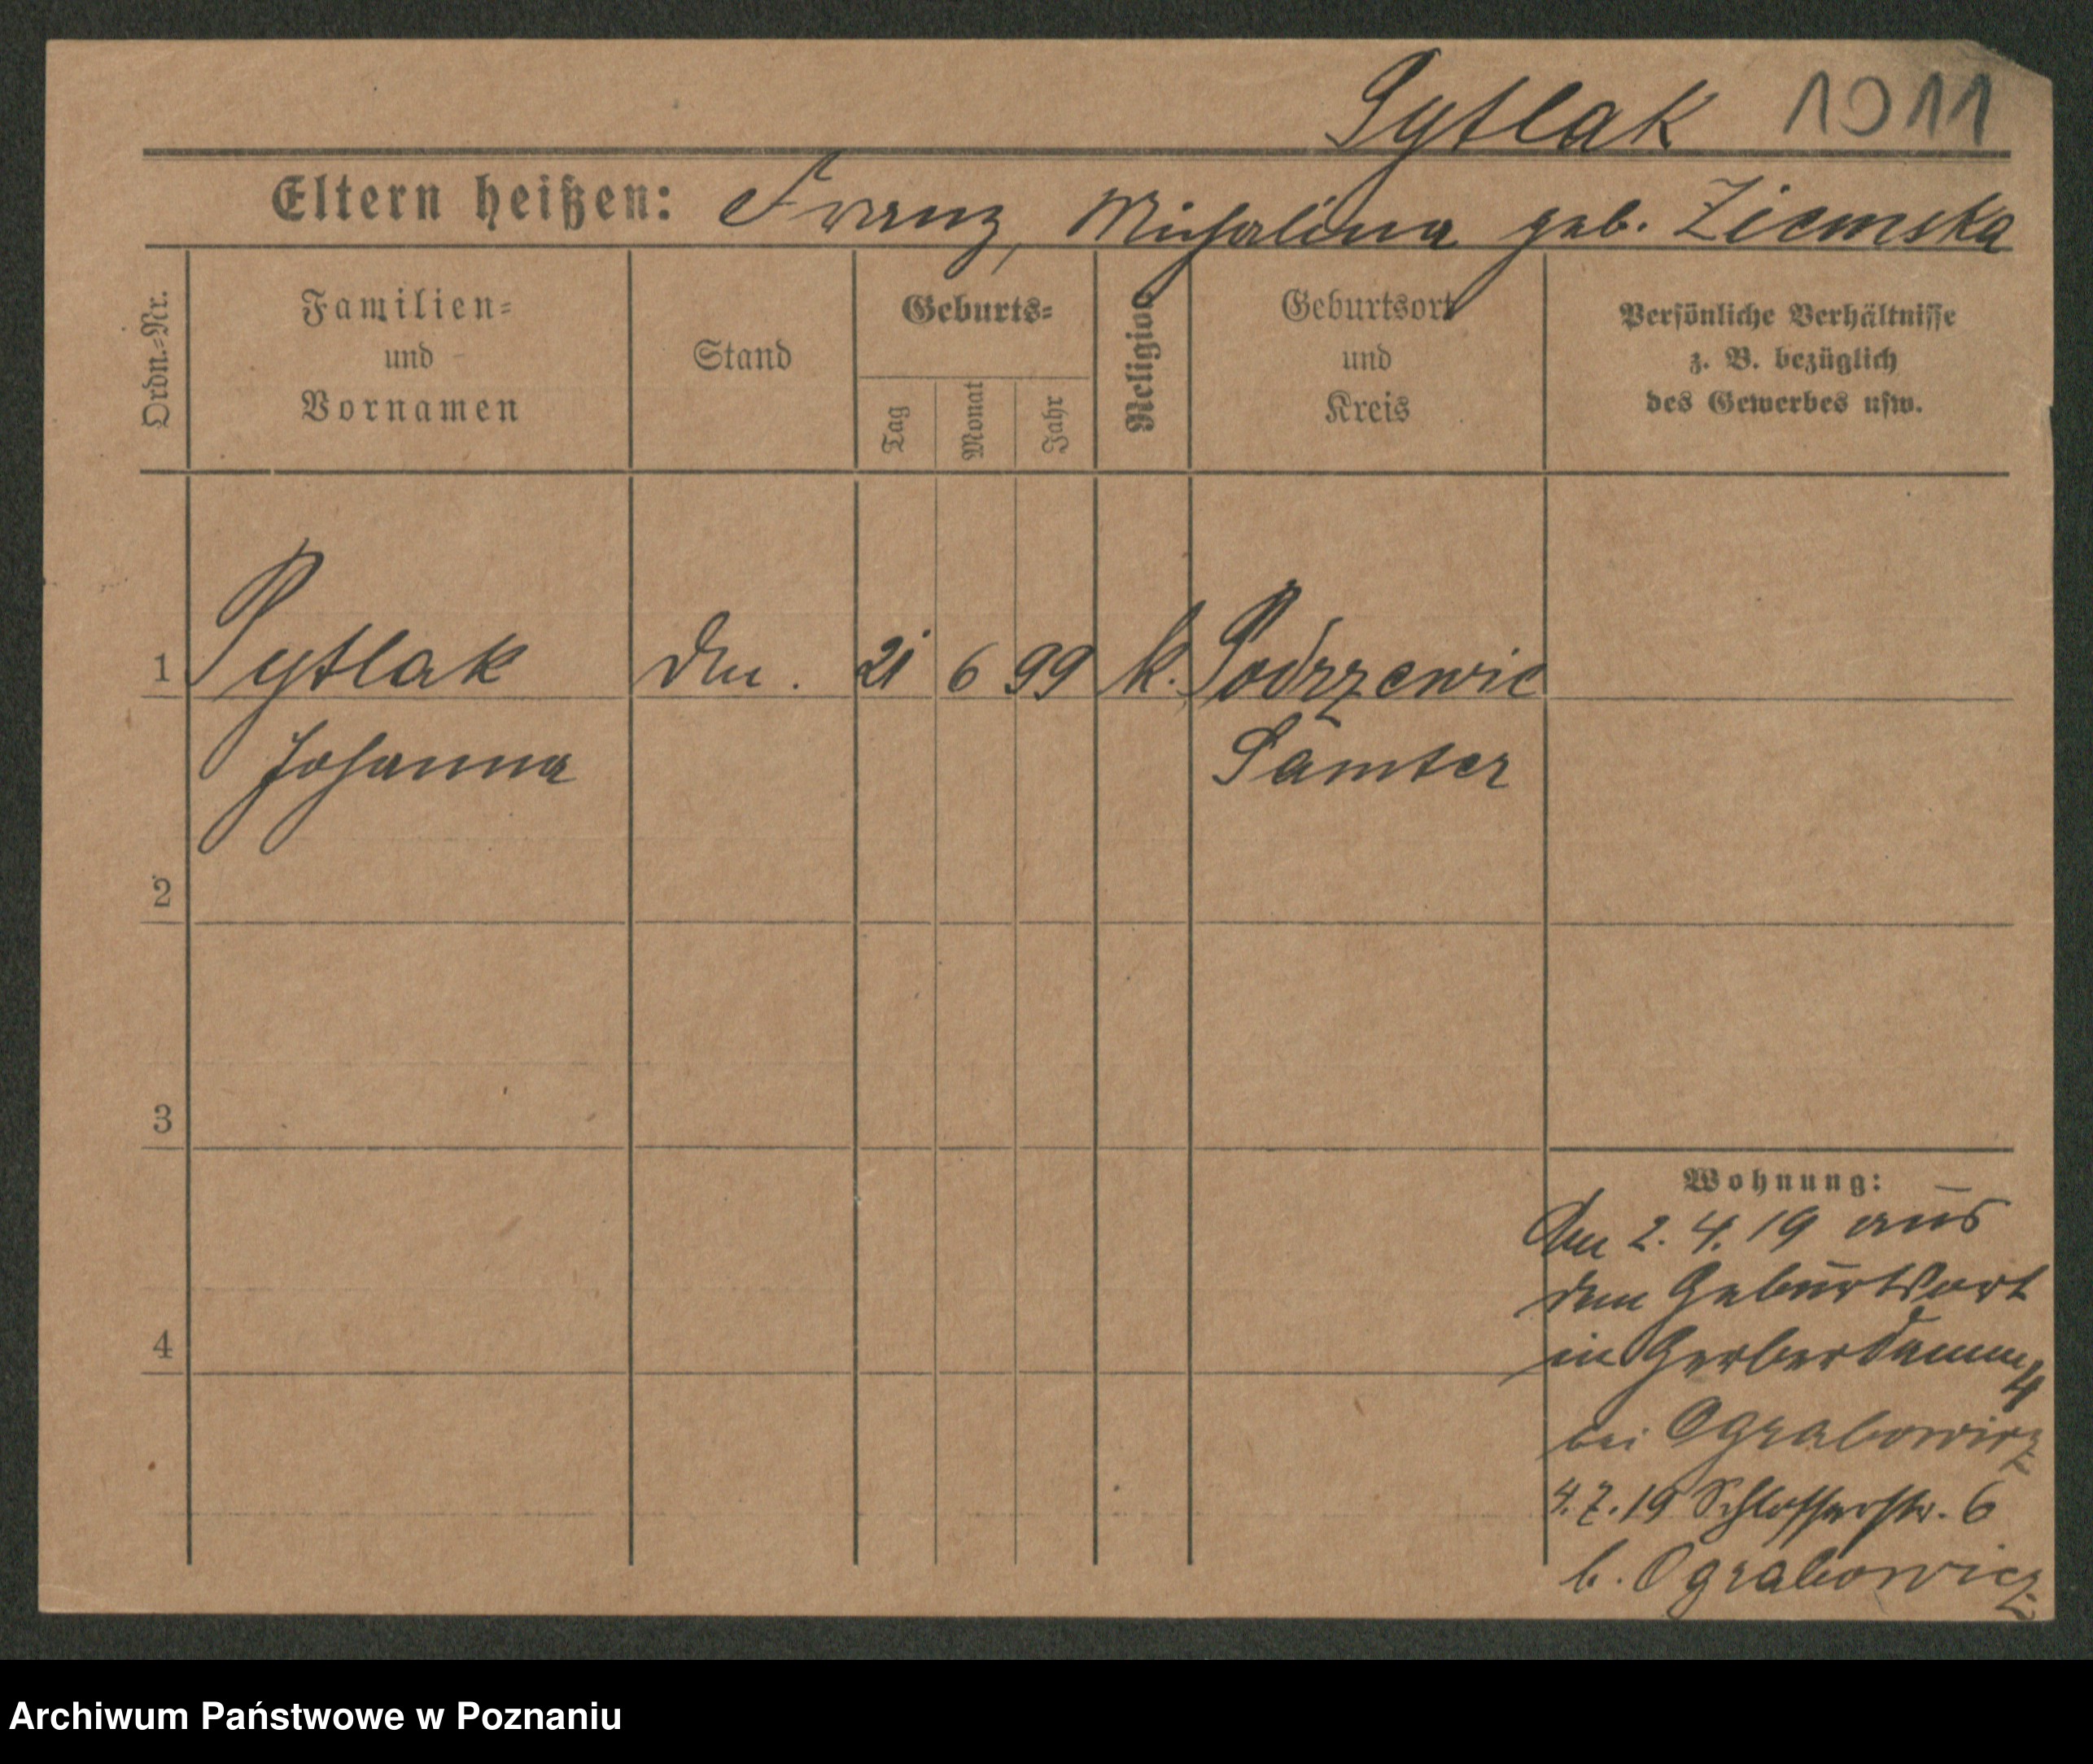 Pytlak 1911
Eltern heißen: Franz, Michalina geb. Ziemska
Ordn.-Nr.
Familien-
und
Vornamen
Stand
Geburts-
Tag
Monat
Jahr
Religion
Geburtsort
und
Kreis
Persönliche Verhältnisse
z. B. bezüglich
des Gewerbes usw.
1 Pytlak 21 6 99 k. Podrzewie
Johanna Samter
2
3
4
Wohnung:
Am 2. 4. 19 aus
dem Geburtsort
in Gerberdamm 4
bei Ograbowicz
4.7.19 Schlosserstr. 6
b. Ograbowicz
Archiwum Państwowe w Poznaniu